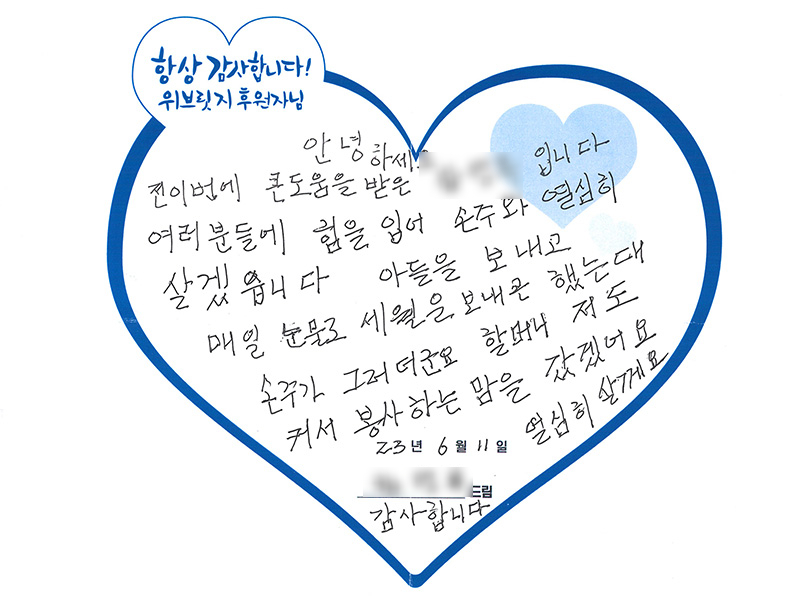 항상 감사합니다!
위브릿지 후원자님
안녕하세요 입니다
전이번에 큰도움을 받은 열심히
여러분들에 힘을 입어 손주와
살겠읍니다 아들을 보내고
매일 눈물로 세월을 보내곤 했는대
손주가 그러더군요 할머니 저도
커서 봉사하는 맘을 갔겠어요
열심히 살께요
23년 6월 11일
드림
감사합니다